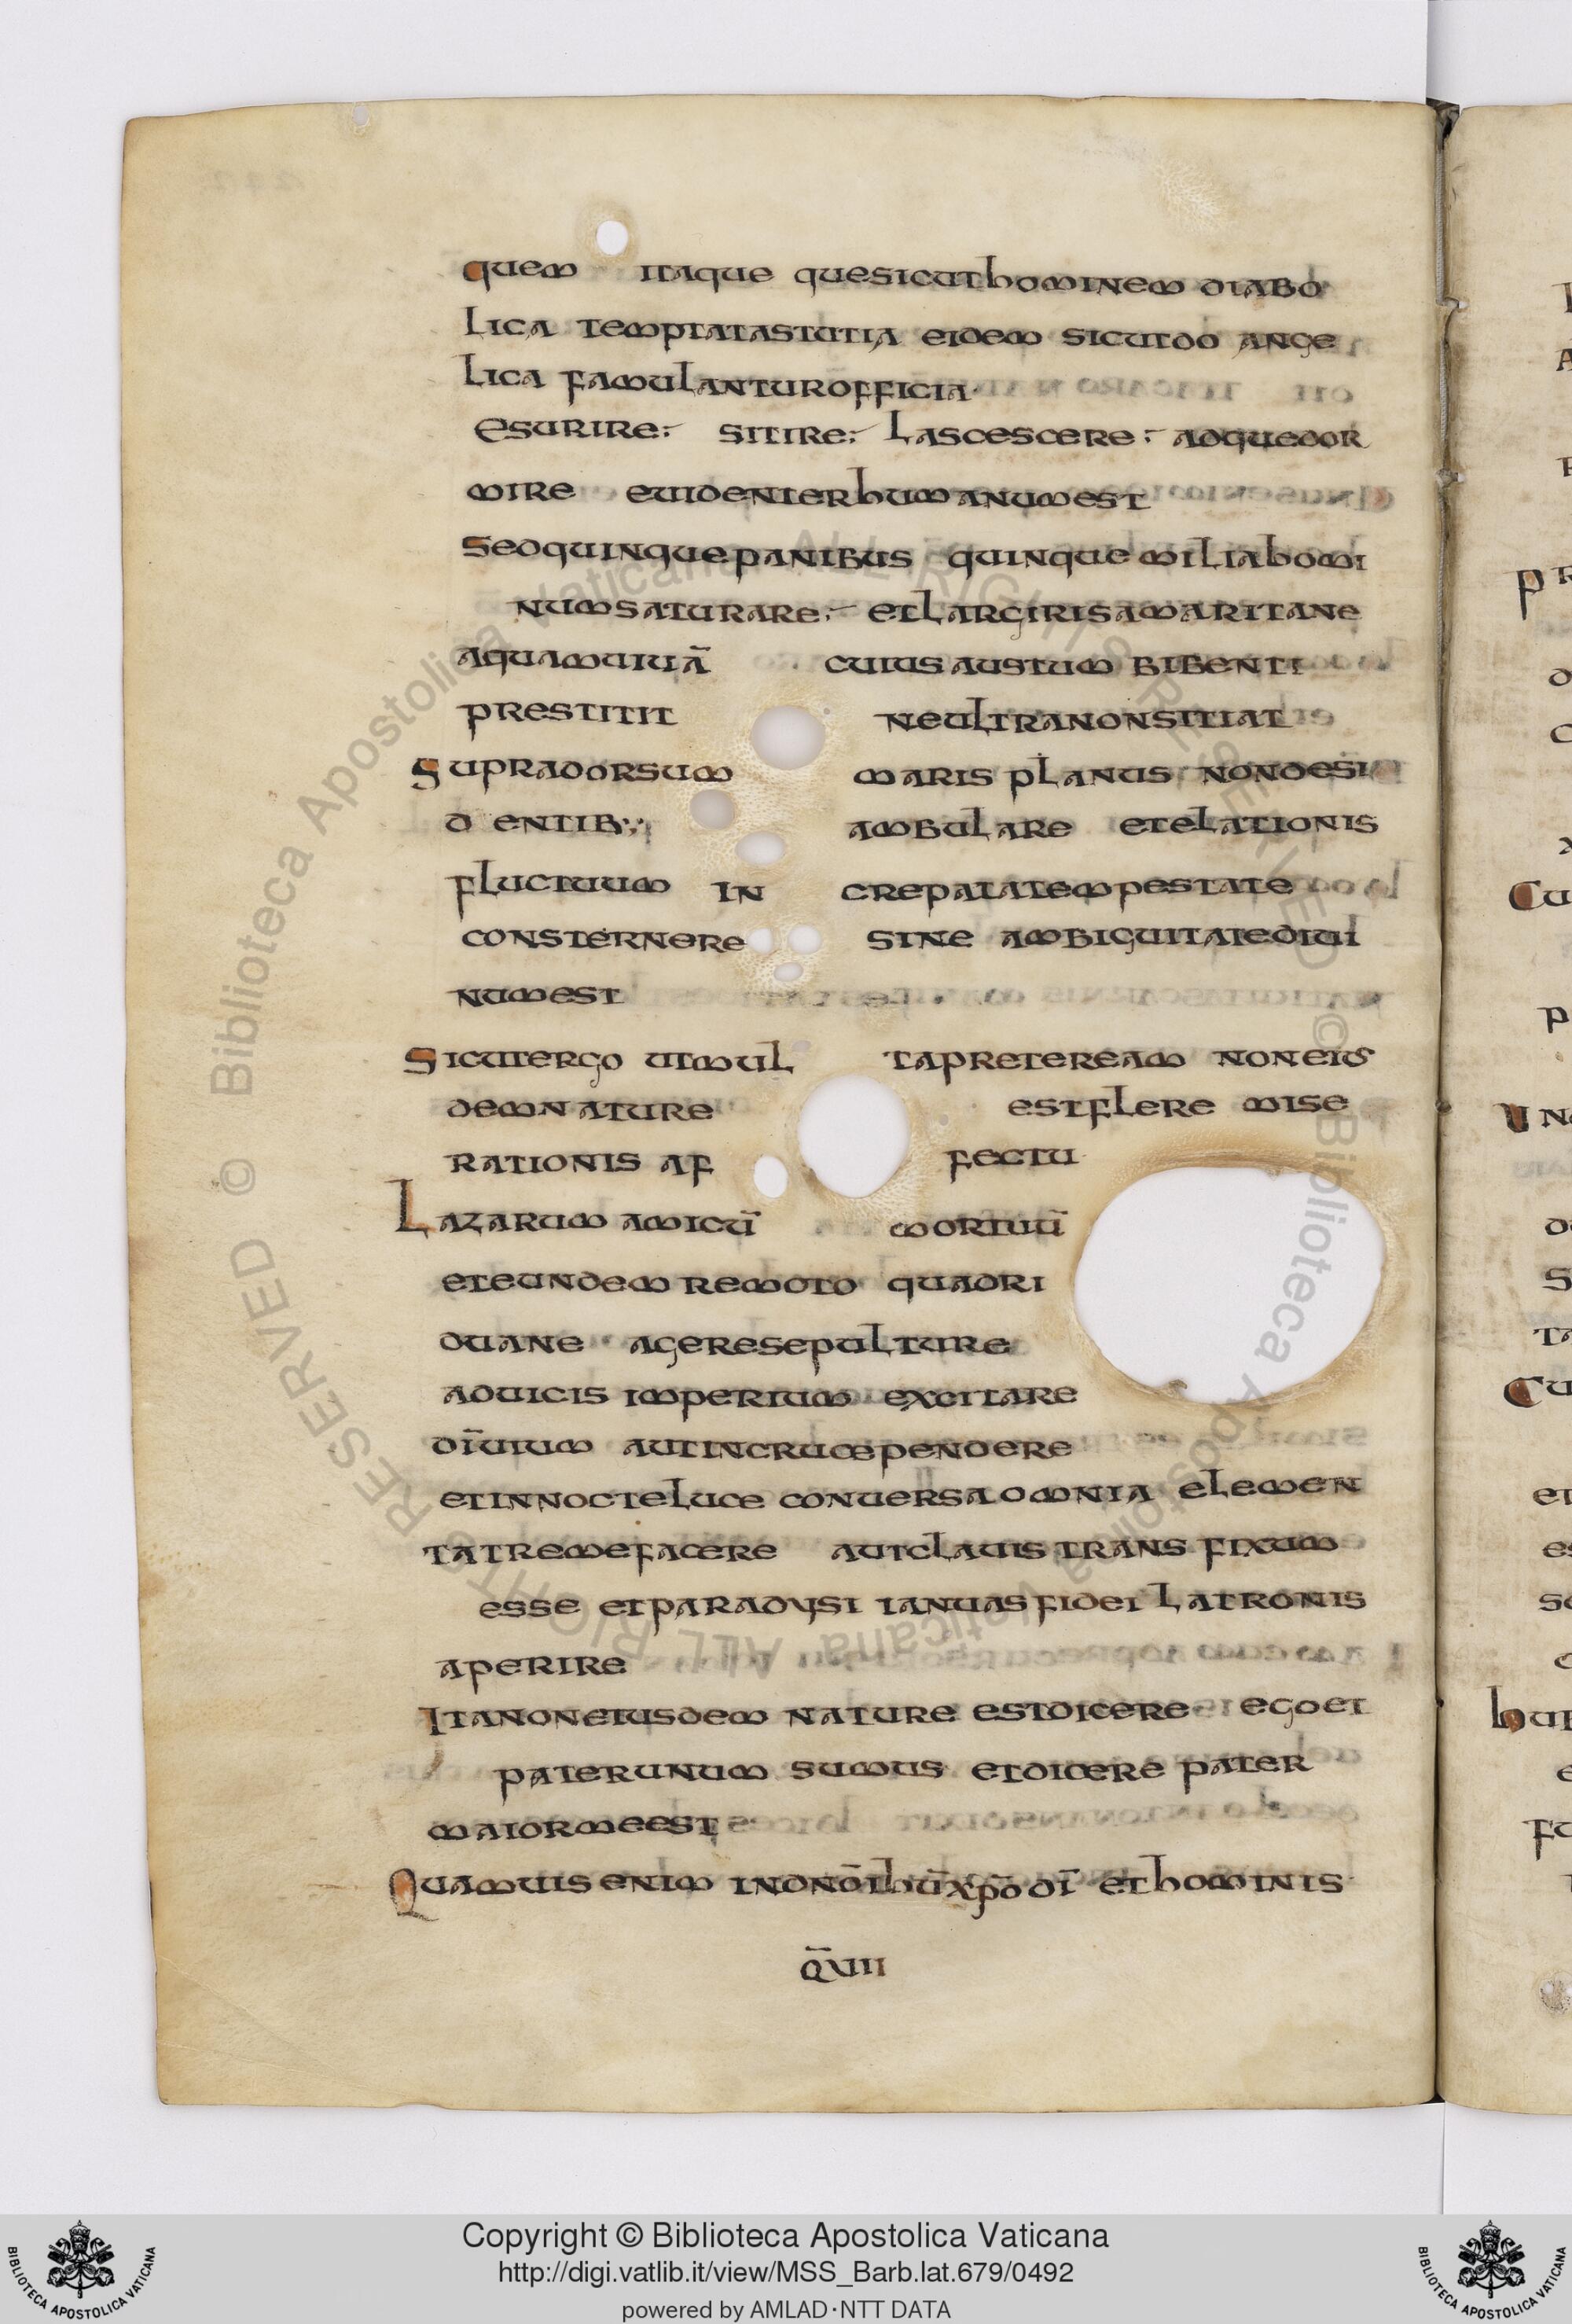 quem itaque quesicuthominem diabo
lica temptatastutia eidem sicutdo ange
lica famulanturofficia·
esurire; sitire; Lascescere; adquedor
mire euidenterhumanumest
Sedquinquepanibus quinquemiliahomi
numsaturare; etlargirisamaritane
aquamuiuā cuiusaustum bibenti
prestitit neultranonsitiat
Supradorsum maris planus nondesi
d entib; ambulare etelationis
fluctuum in crepatatempestate
consternere sine ambiguitatediui
numest
Sicutergo utmul tapretereeam noneius
demnature estflere mise
rationis af fectu
Lazarum amicū mortuū
eteundem remoto quadri
duane ageresepulture
aduicis imperium excitare
dīuium autincrucependere
etinnocteluce conuersaomnia elemen
tatremefacere autclauis trans fixum
esse etparadysi ianuasfidei Latronis
aperire
Itanoneiusdem nature estdicere egoet
paterunum sumus etdicere pater
maiormeest
Quamuis enim indnōihūxpōdī ethominis
Q̄VIII
Copyright © Biblioteca Apostolica Vaticana
http://digi.vatlib.it/view/MSS_Barb.lat.679/0492
powered by AMLAD·NTT DATA
BIBLIOTECA APOSTOLICA VATICANA
BIBLIOTECA APOSTOLICA VATICANA
© Biblioteca Apostolica Vaticana ALL RIGHTS RESERVED © Biblioteca Apostolica Vaticana ALL RIGHTS RESERVED